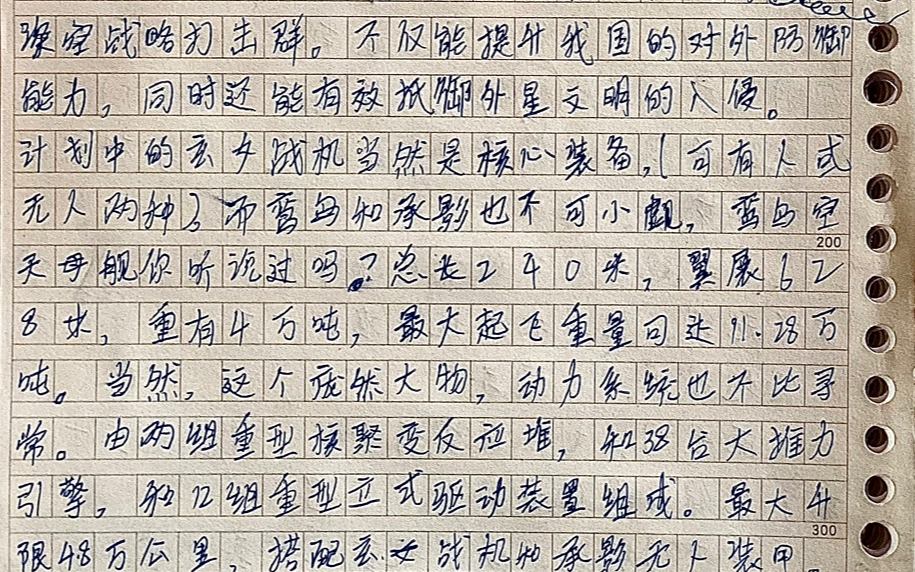 深空战略打击群。不仅能提升我国的对外防御
能力,同时还能有效抵御外星文明的入侵。
计划中的玄女战机当然是核心装备,(可有人或
无人两种)而鸾鸟和承影也不可小觑,鸾鸟空
200
天母舰你听说过吗?总长240米,翼展62
8米,重有4万吨,最大起飞重量可达11.28万
吨。当然,这个庞然大物,动力系统也不比寻
常。由两组重型核聚变反应堆,和38台大推力
引擎,和12组重型立式驱动装置组成。最大升
300
限48万公里,搭配玄女战机和承影无人装甲